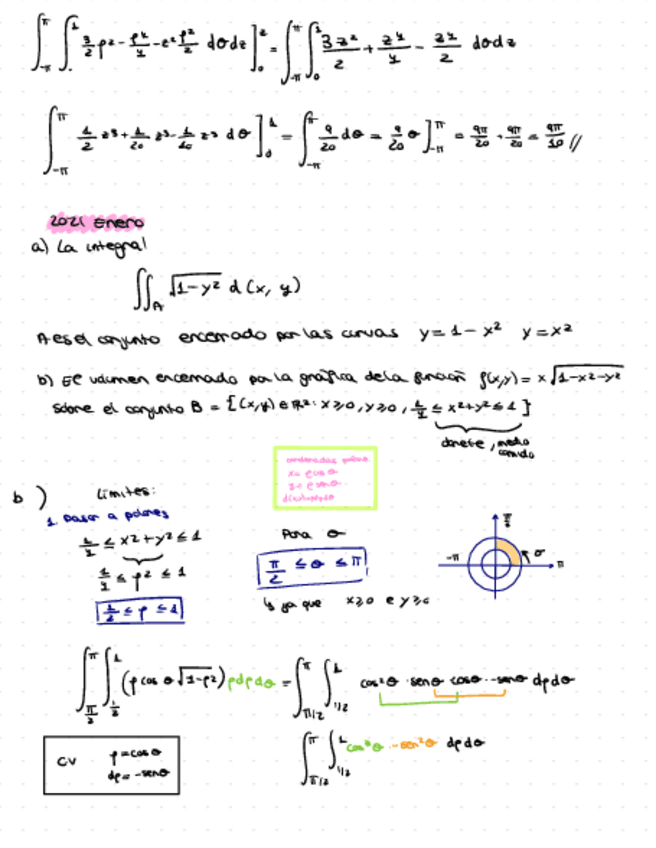 ∫_{-π}^{π} ∫_{0}^{1} 3/2 ρ² - ρ⁴/4 - z² ρ²/2 dθdz ]_{0}^{z} = ∫_{-π}^{π} ∫_{0}^{1} 3z²/2 + z⁴/4 - z⁴/2 dθdz
∫_{-π}^{π} 1/2 z³ + 1/20 z⁵ - 1/10 z⁵ dθ ]_{0}^{1} = ∫_{-π}^{π} 9/20 dθ = 9/20 θ ]_{-π}^{π} = 9π/20 + 9π/20 = 9π/10 //
2021 Enero
a) La integral
∬_A √(1-y²) d(x, y)
A es el conjunto encerrado por las curvas y = 1 - x² y = x²
b) El volumen encerrado por la gráfica de la función f(x,y) = x √(1-x²-y²)
sobre el conjunto B = {(x,y) ∈ R² : x≥0, y≥0, 1/4 ≤ x²+y² ≤ 1}
donete, medio comido
coordenadas polares
x = ρ cos θ
y = ρ sen θ
b) Limites:
1. Pasar a polares
1/4 ≤ x²+y² ≤ 1
1/4 ≤ ρ² ≤ 1
1/2 ≤ ρ ≤ 1
Para θ
π/2 ≤ θ ≤ π
↳ ya que x≥0 e y≥0
π/2
-π
θ
π
∫_{π/2}^{π} ∫_{1/2}^{1} (ρ cos θ √(1-ρ²)) ρ dρ dθ = ∫_{π/2}^{π} ∫_{1/2}^{1} cos²θ · senθ cosθ · -senθ dρ dθ
CV ρ = cos θ
dρ = -senθ
∫_{π/2}^{π} ∫_{1/2}^{1} cos³θ · -sen²θ dρ dθ